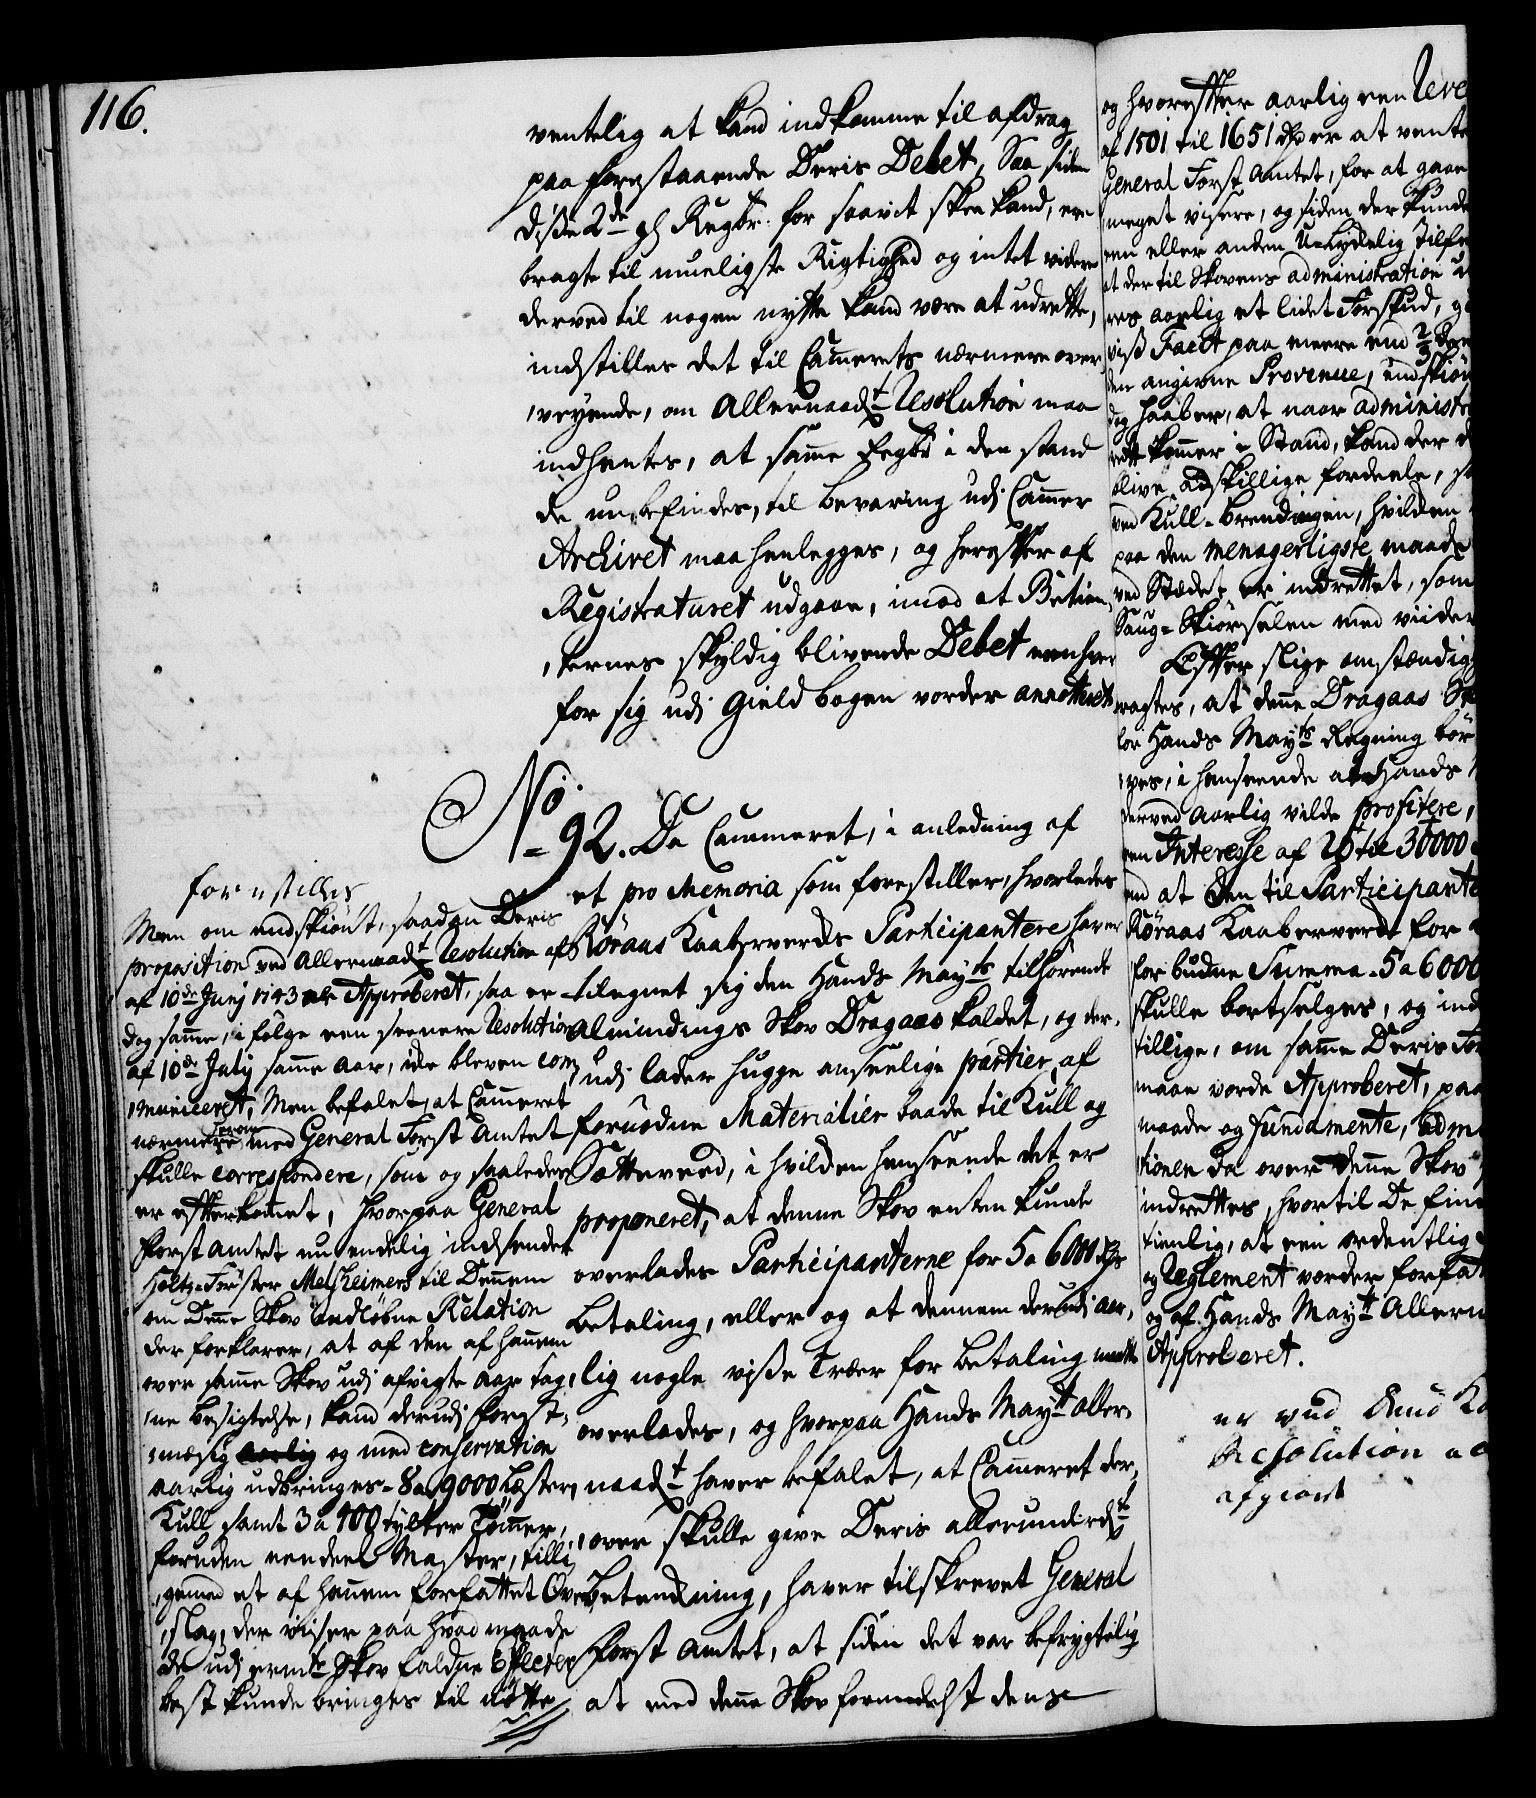 116.
ventelig at kand indkomme til afdrag
paa forestaaende Deris Debet, Saa siden
disse 2de gl Regnskr. for saavit skee kand, ere
bragte til mueligste Rigtighed og intet videre
derved til nogen nytte kand være at udrette,
indstilles det til Cammerets nærmere over,
,veyende, om Allernaadt Resolution maa
indhentes, at samme Regnskr i den stand
de nu befindes, til bevaring udi Cammer
Archivet maa henlegges, og herefter af
Registraturet udgaae, imod at Betien,
,ternes skyldig blivende Debet eenhver
for sig udi Gield bogen vorder annoteret
No. 92. Da Cammeret, i anledning af
et pro Memoria som forestiller, hvorledes
Röraas Kaaberverks Participantere haver
tilegnet sig den Hands Mayts tilhørende
Almindings Skov Dragaas kaldet, og der,
udi lader hugge anseelige partier af
fornødne Materialier baade til Kull og
Sætteveed, i hvilken henseende det er
proponeret, at denne Skov enten kunde
overlades Participanterne for 5 a 6000 Rdr
betaling, eller og at dennem derudi aar,
,lig nogle visse Træer for betaling maatte
overlades, og hvorpaa Hands Mayt aller,
naadt haver befalet, at Cammeret der,
,over skulle give Deris allerunderdte
Betænkning, haver tilskrevet General
Forst Amtet, at siden det var befrygtelig
at med denne Skov formedelst dens
forestilles
Men om endskiønt, saadan Deris
proposition ved Allernaadt Resolution af
af 10de Junj 1743 er Approberet, saa er
dog samme, i følge een seenere Resolution
af 10de July samme aar, ikke bleven com,
,municeret, Men befalet, at Cammeret
nærmere med General Forst Amtet
skulle correspondere, som og saaledes
er efterkommet, hvorpaa General
Forst Amtet nu endelig indsender
Holtz-Förster Melsheimers til Dennem
om Denne Skov indløbne Relation
der forklarer, at af den af hannem
over samme Skov udi afvigte aar tag,
,ne besigtelse, kand derudi forst,
,mæsig aarlig og med conservation
aarlig udbringes - 8 a 9000 Læster
Kull samt 3 a 400 tylter Tømmer,
foruden eendeel Master, tilli,
,gemed et af hannem forfattet Over,
,slag, der viiser paa hvad maade
de udi ermte Skov faldne Effecter
best kunde bringes til nøtte
og hvorefter aarlig een Reve
af 1501 til 1651 Rdr er at vente
General Forst Amtet, for at gaae
meget visere, og siden der kunde
een eller anden U-Lydelig Tilfe
at der til Skovens administration u
res aarlig et lidet Forskud, g
viß Facit paa meere end 2/3 de
den angivne Provenue, endskiøn
dog haaber, at naar administr
ret kommer i Stand, kand der d
blive adskillige fordeele, s
ved Kull-brendingen, hvilken
paa den menagerligste maade
ved Stædet er indrettet, som
Saug-Skiørselen med viidere
Efter slige omstændig
eragtes, at denne Dragaas Sk
for Hands Mayts Regning bör
ves, i henseende at Hands M
derved aarlig vilde profitere,
een Interesse af 25 til 30000
end at den til Participante
Röraas Kaaberverk for
for budne Summa - 5 a 6000
skulle bortselges, og ind
tillige, om samme Deris For
maae vorde Approberet, paa
maade og fundamente, adm
tionen da over denne Skov
indrettes, hvortil De fin
tienlig, at een ordentlig
og Reglement vorder forfat
og af Hands Mayt Allern
Approberet.
er ved
Resolution a
afgiort